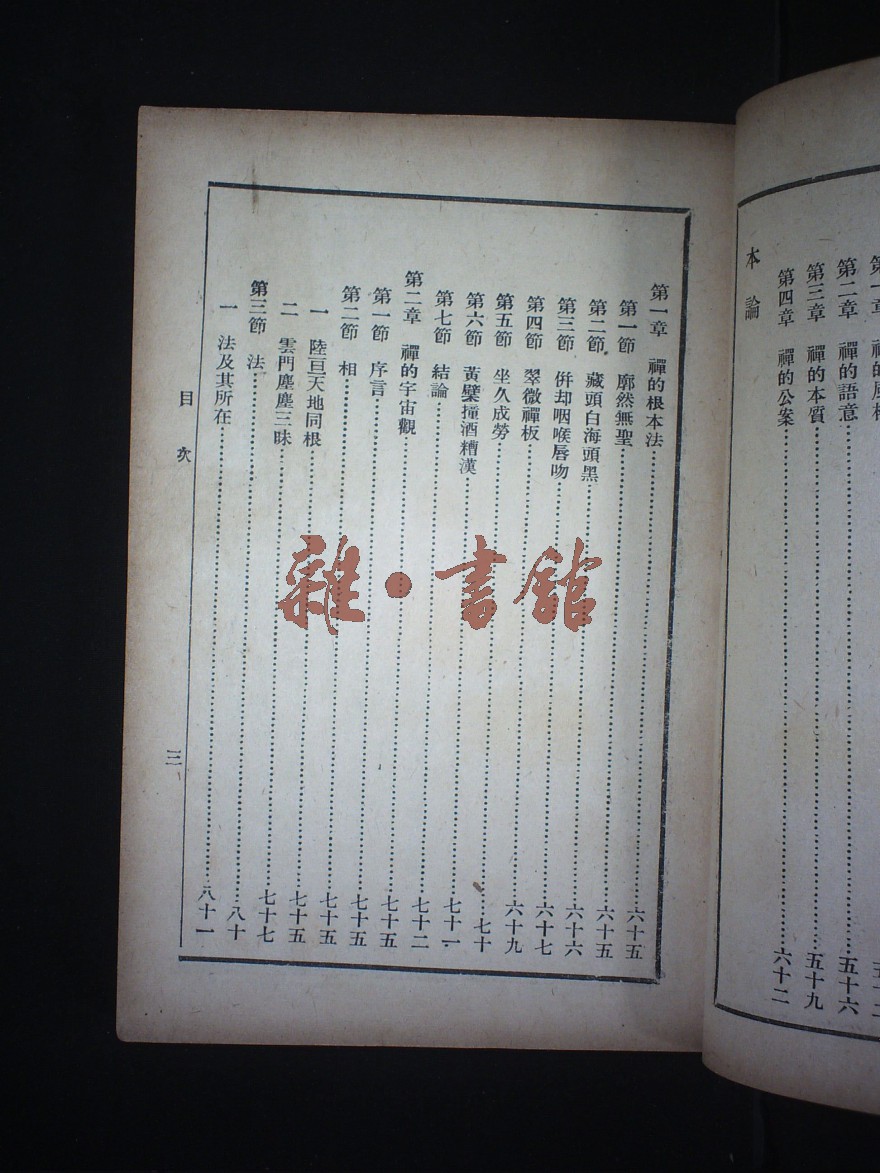 第二章　禪的語意……五十六
第三章　禪的本質……五十九
第四章　禪的公案……六十二
本論
第一章　禪的根本法……六十五
第一節　廓然無聖……六十五
第二節　藏頭白海頭黑……六十六
第三節　併却咽喉唇吻……六十七
第四節　翠微禪板……六十九
第五節　坐久成勞……七十
第六節　黃檗撞酒糟漢……七十一
第七節　結論……七十二
第二章　禪的宇宙觀……七十五
第一節　序言……七十五
第二節　相……七十五
一　陸亘天地同根……七十五
二　雲門塵塵三昧……七十七
第三節　法……八十
一　法及其所在……八十一
目次
三
雜·書館